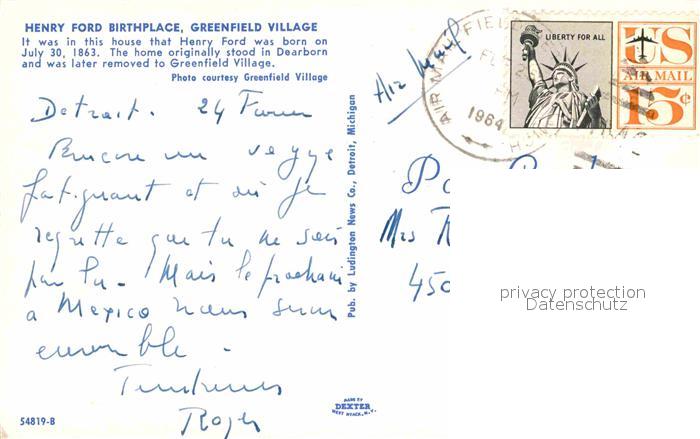 HENRY FORD BIRTHPLACE, GREENFIELD VILLAGE
It was in this house that Henry Ford was born on
July 30, 1863. The home originally stood in Dearborn
and was later removed to Greenfield Village.
Photo courtesy Greenfield Village
Detroit. 24
Encore un
fatiguant et où je
regrette que tu ne sois
pas là. Mais le prochain
à Mexico nous serons
ensemble.
Tendresses
Roger
54819-B
Pub. by Ludington News Co., Detroit, Michigan
MADE BY
DEXTER
WEST NYACK, N.Y.
Air Mail
AIR MAIL FIELD
PM
1964
LIBERTY FOR ALL
US
AIR MAIL
15¢
Mrs
450
privacy protection
Datenschutz